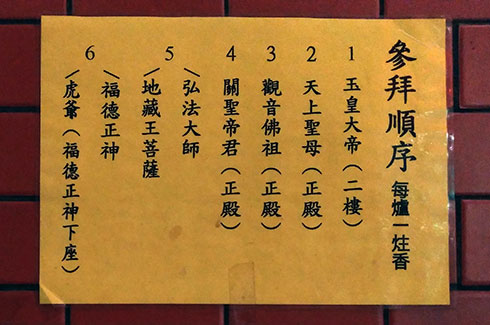 參拜順序 每爐一炷香
1 玉皇大帝(二樓)
2 天上聖母(正殿)
3 觀音佛祖(正殿)
4 關聖帝君(正殿)
/弘法大師
5 /地藏王菩薩
/福德正神
6 /虎爺(福德正神下座)